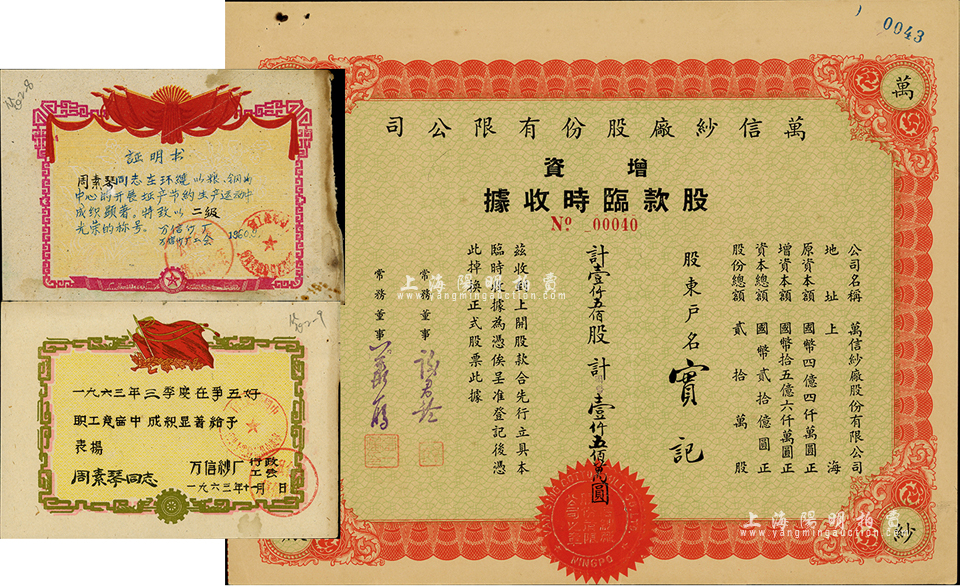 0043
萬
萬信紗廠股份有限公司
增資
股款臨時收據
No 00040
公司名稱 萬信紗廠股份有限公司
地址 上海
原資本額 國幣四億四仟萬圓正
增資本額 國幣拾五億六仟萬圓正
資本總額 國幣貳拾億圓正
股份總額 貳拾萬股
股東戶名 寶記
計壹仟五佰股計 壹仟五佰萬圓
茲收到上開股款合先行立具本
臨時收據為憑俟呈准登記後憑
此掉換正式股票此據
常務董事
常務董事
NINGPO
紗
上海陽明拍賣
www.yangmingauction.com
上海陽明拍賣
www.yangmingauction.com
302-8
証明书
周素琴同志在环绕以粮、钢为
中心的开展增产节约生产运动中
成织显著。特致以 二級
光荣的称号。
1960.
302-9
一九六三年三季度在爭五好
职工竞窗中成积显著給予
表揚
周素琴同志
万信紗厂行政
工会
一九六三年十一月 日